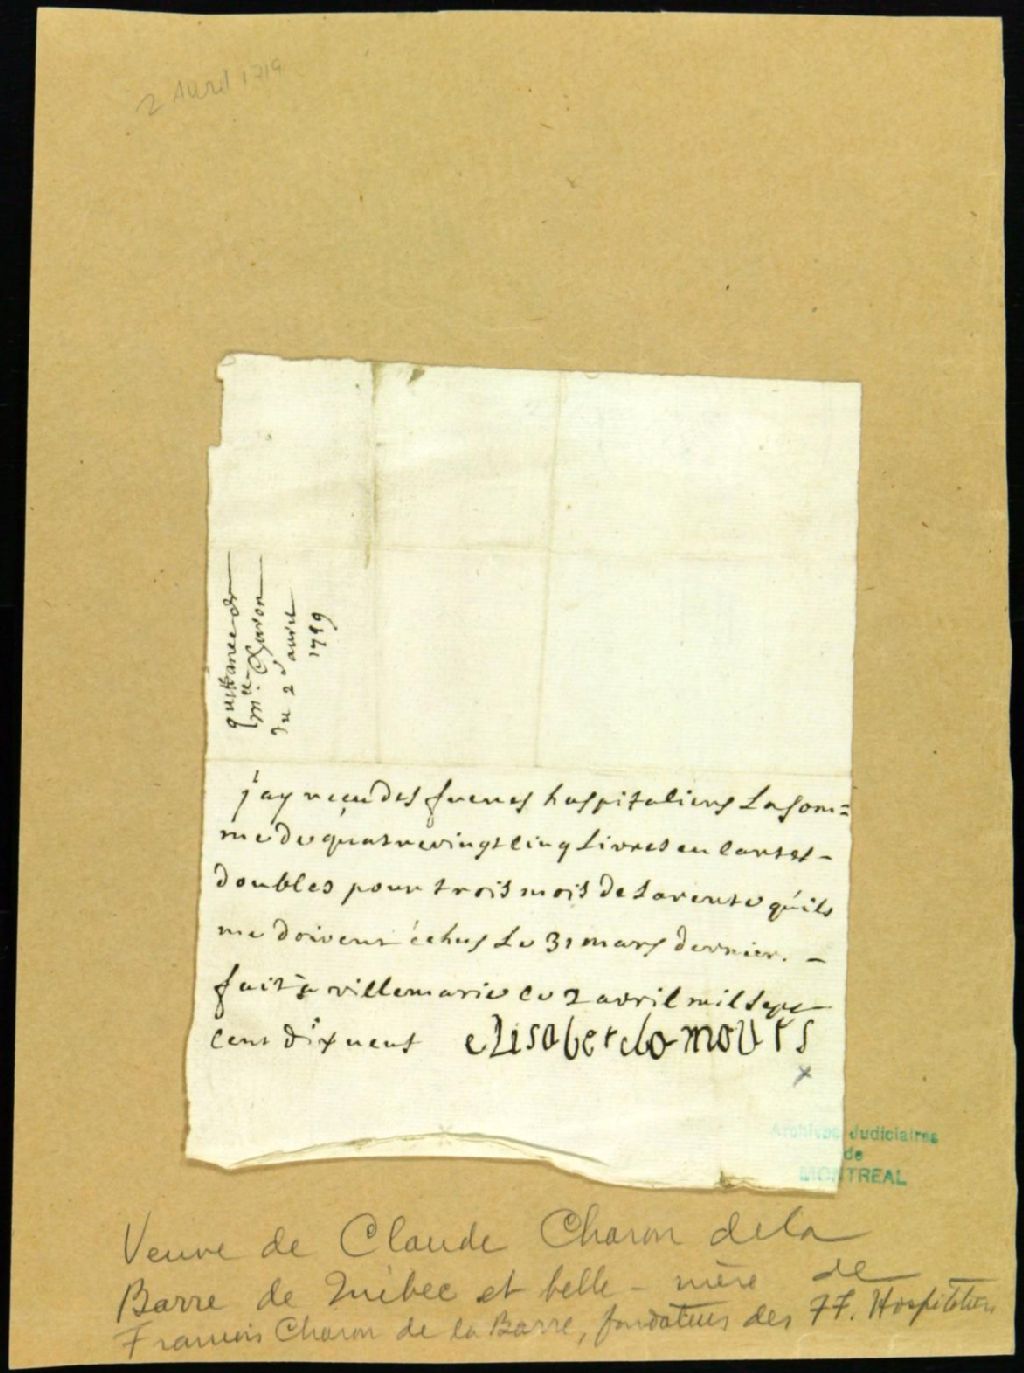 2 Avril 1719
quittance de
mlle. Charon
du 2 d'avril
1719
j'ay receu des freres hospitaliers La som=
me de quatre vingt cinq Livres en cartes -
doubles pour trois mois de La rente qu'ils
me doivent échus Le 31 mars dernier. -
fait à villemarie ce 2 avril mil sept
cent dix neuf elisabet damours
x
Archives Judiciaires
de
MONTREAL
Veuve de Claude Charon de la
Barre de Québec et belle-mère de
Francois Charon de la Barre, fondateur des FF. Hospitaliers